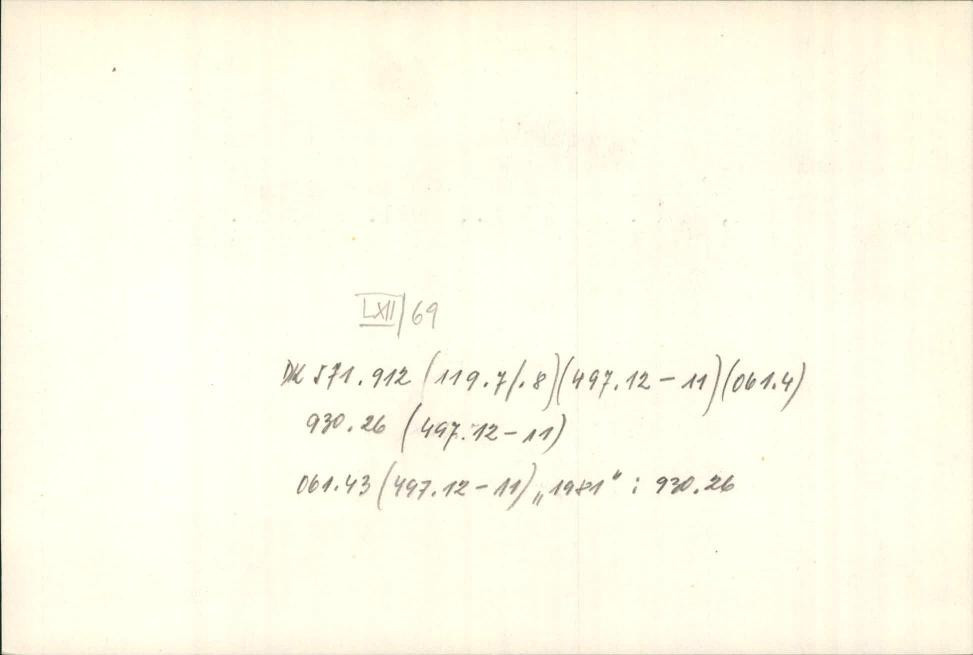 LXII/69
DK 571.912 (119.7/.8)(497.12-11)(061.4)
930.26 (497.12-11)
061.43 (497.12-11) „1981“ : 930.26